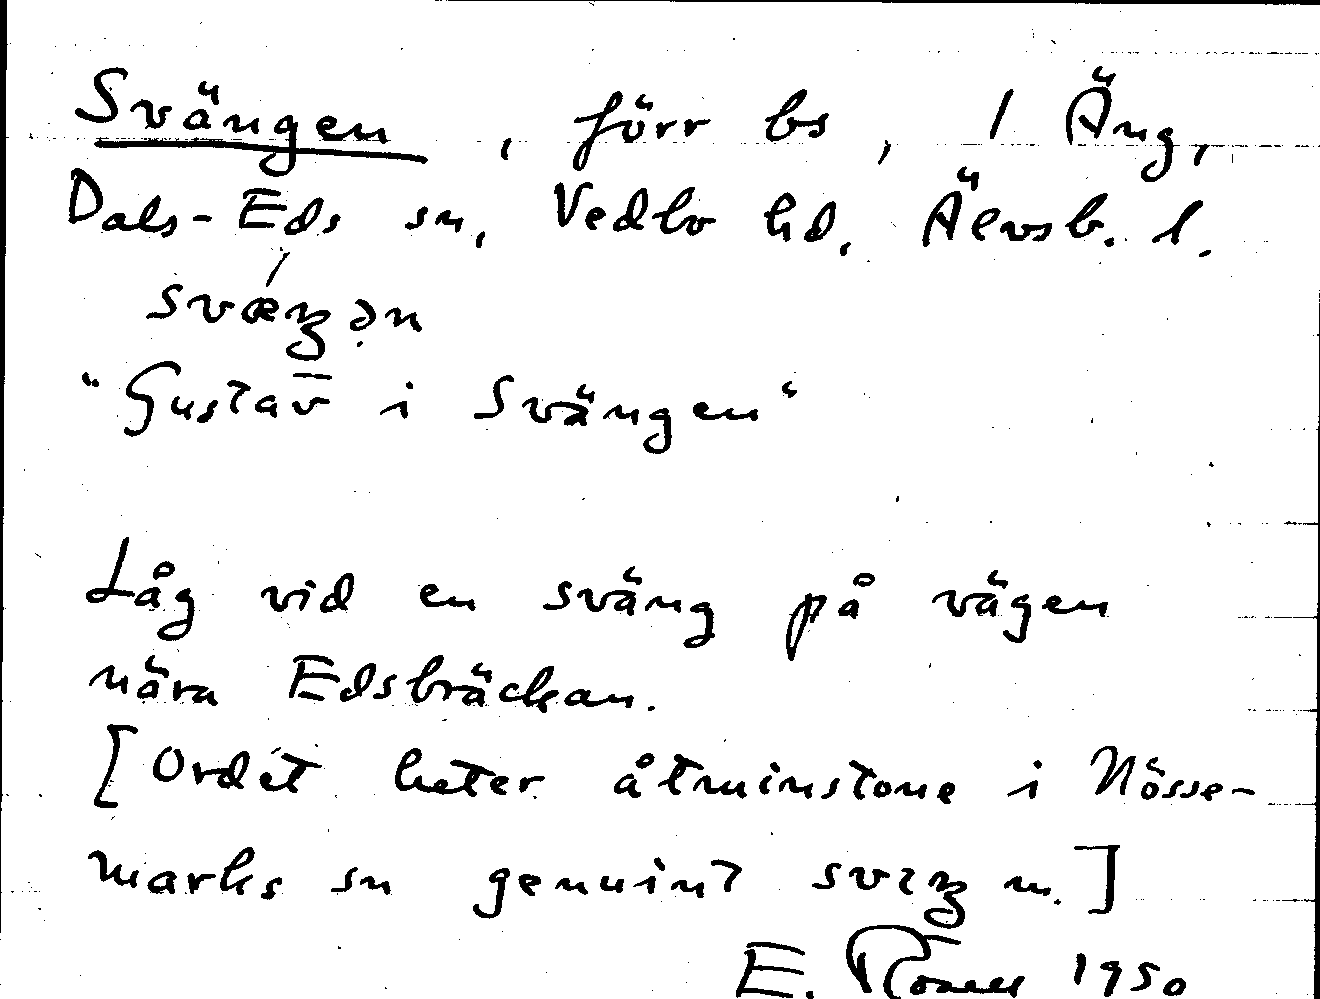 Svängen, förr bs, 1 Äng,
Dals-Eds sn, Vedbo hd, Älvsb. l.
svæŋən
"Gustav i Svängen"
Låg vid en sväng på vägen
nära Edsbräckan.
[Ordet heter åtminstone i Nösse-
marks sn genuint svɪŋ m.]
E. 1950